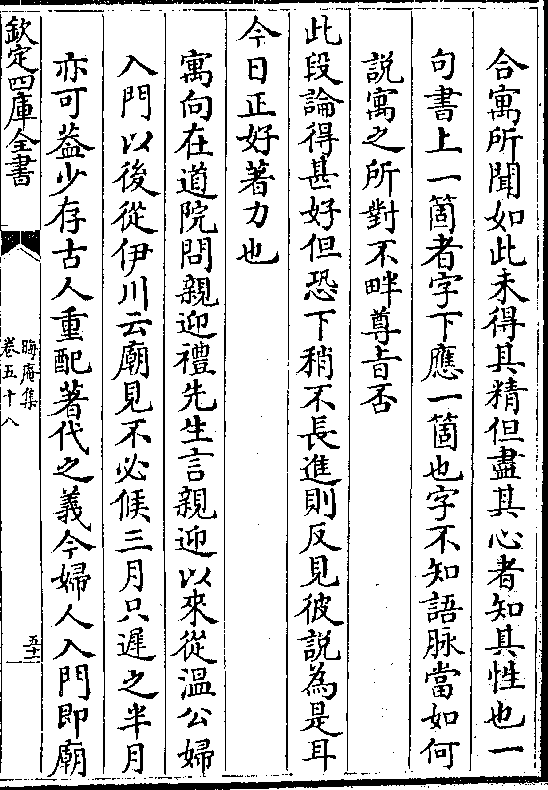 合寓所聞如此未得其精但盡其心者知其性也一
句書上一箇者字下應一箇也字不知語脉當如何
說寓之所對不畔尊旨否
此段論得甚好但恐下稍不長進則反見彼說為是耳
今日正好著力也
寓向在道院問親迎禮先生言親迎以來從溫公婦
入門以後從伊川云廟見不必候三月只遲之半月
亦可葢少存古人重配著代之義今婦人入門即廟
欽定四庫全書
晦庵集
卷五十八
五十一